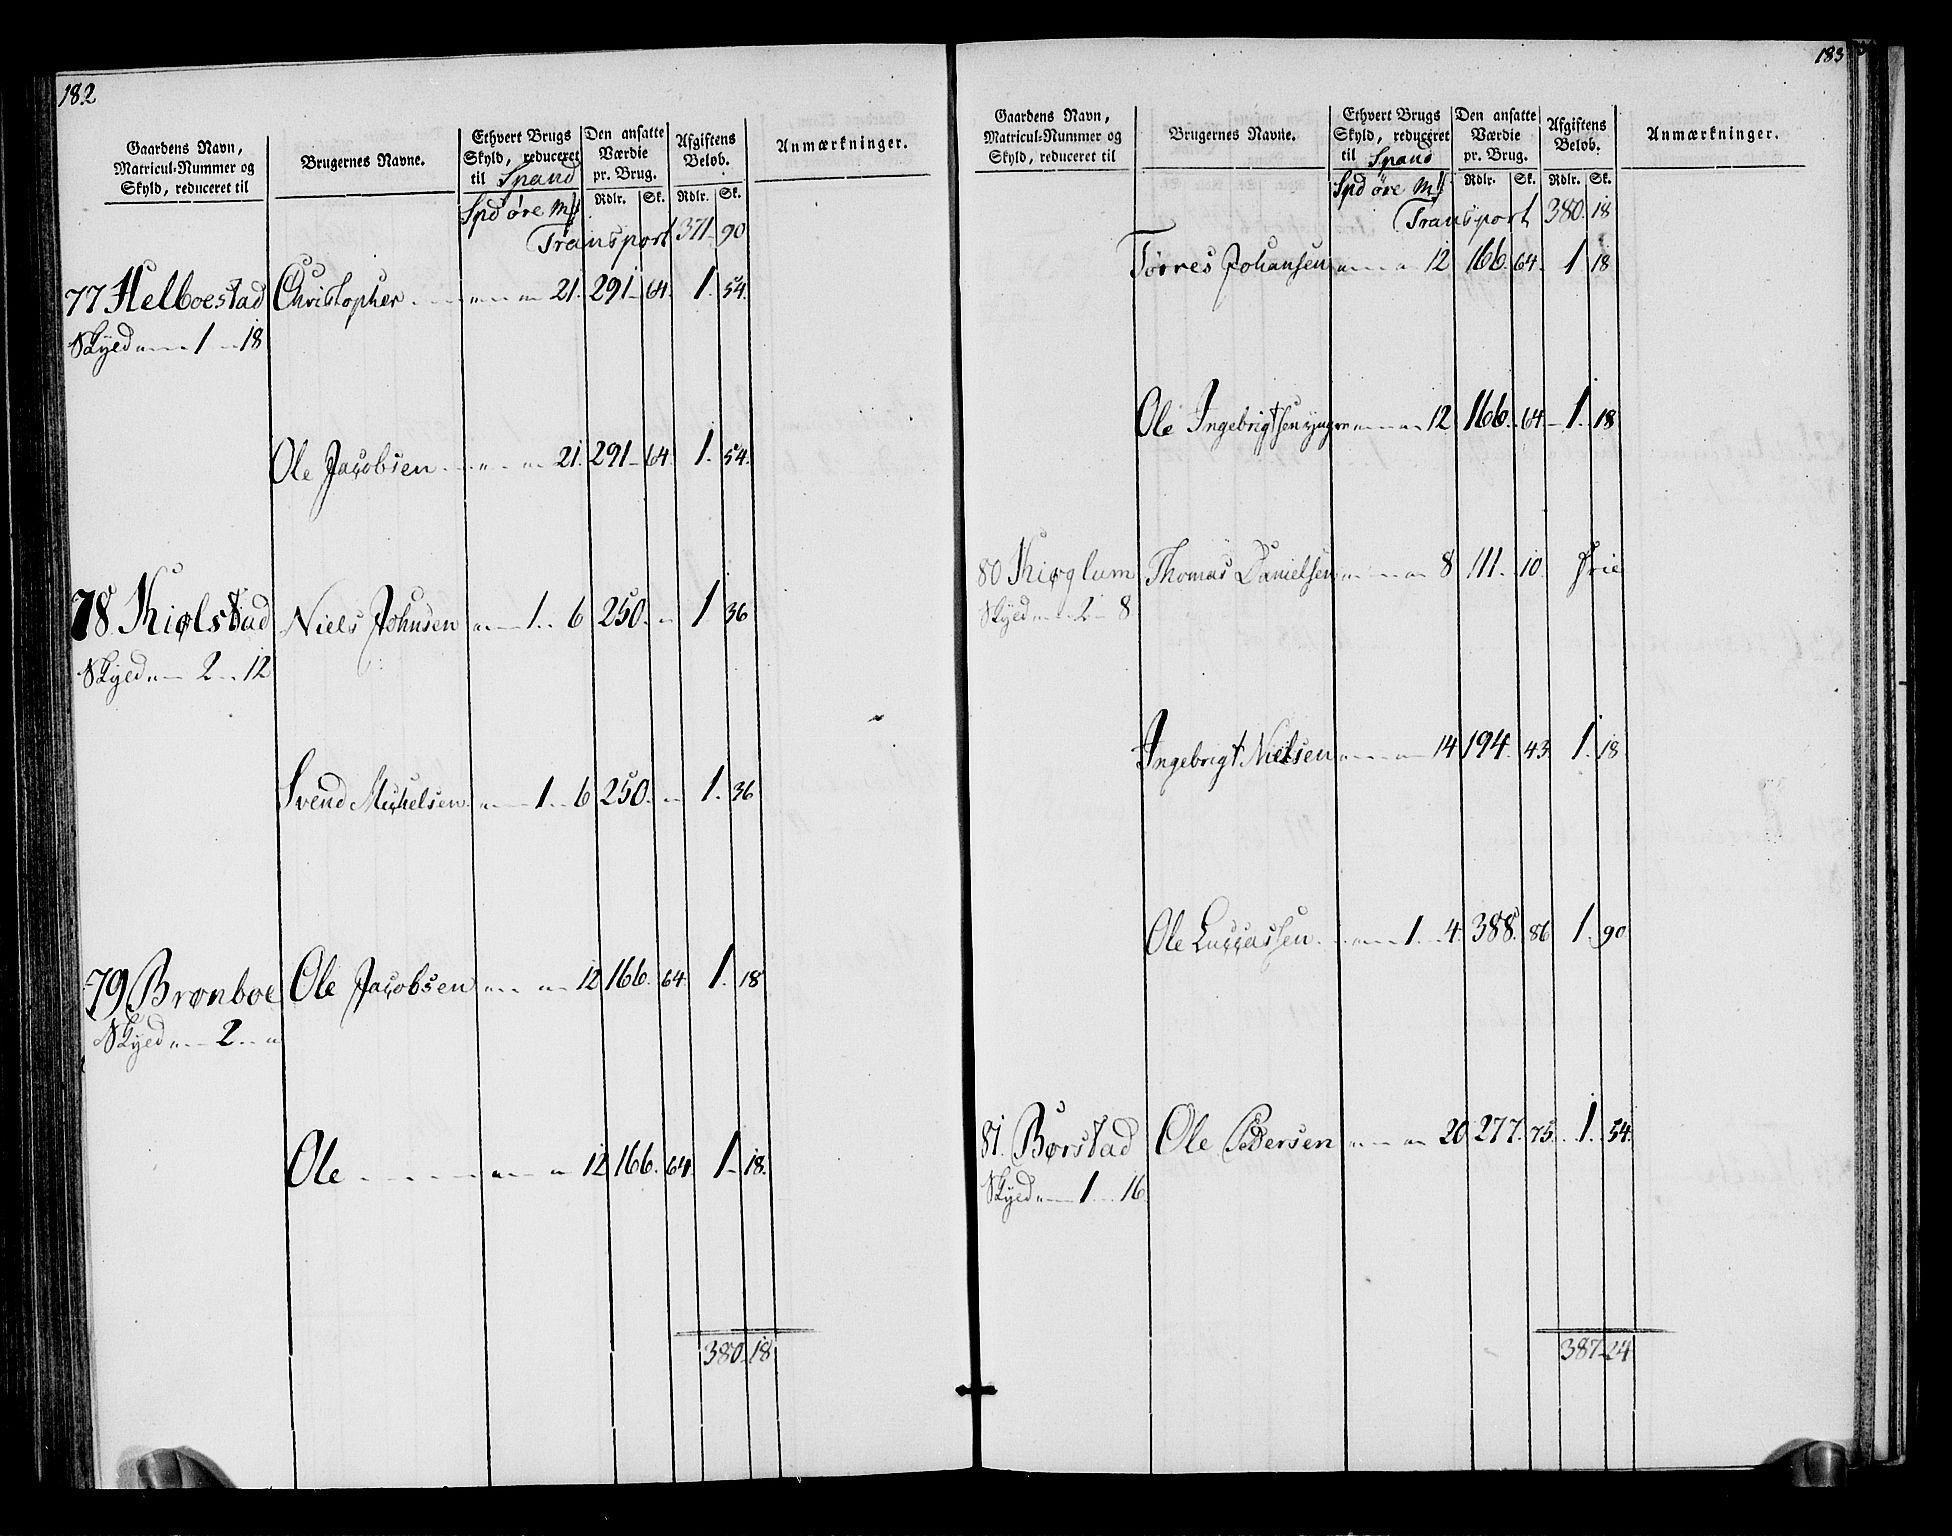 182
Gaardens Navn, Matricul-Nummer og Skyld, reduceret til | Brugernes Navne. | Ethvert Brugs Skyld, reduceret til Spand | Den ansatte Værdie pr. Brug. | Afgiftens Beløb. | Anmærkninger.
Spd øre Mk | Rdlr. | Sk. | Rdlr. | Sk.
Transport 371 90
77 Helboestad Christopher . . . 21. 291 64. 1. 54.
Skyld 1 18
Ole Jacobsen 21. 291 64. 1. 54.
78. Kiølstad Niels Johnsen 1. 6 250. 1 36
Skyld 2 12
Svend Michelsen 1 6 250. 1. 36
79 Brønboe Ole Jacobsen 12 166. 64. 1. 18
Skyld 2
Ole 12 166. 64. 1 18.
380 18
183
Gaardens Navn, Matricul-Nummer og Skyld, reduceret til | Brugernes Navne. | Ethvert Brugs Skyld, reduceret til Spand | Den ansatte Værdie pr. Brug. | Afgiftens Beløb. | Anmærkninger.
Spd øre Mk | Rdlr. | Sk. | Rdlr. | Sk.
Transport 380. 18
Tørres Johansen 12 166. 64. 1 18
Ole Ingebrigtsen yngre 12 166. 64 1. 18
80 Kiøglum Thomas Danielsen 8 111. 10. frie
Skyld 2 8
Ingebrigt Nielsen 14 194. 43. 1. 18
Ole Luccassen 1. 4. 388. 86 1. 90
81. Børstad Ole Pedersen 20 277. 75. 1. 54.
Skyld 1 16.
387 24